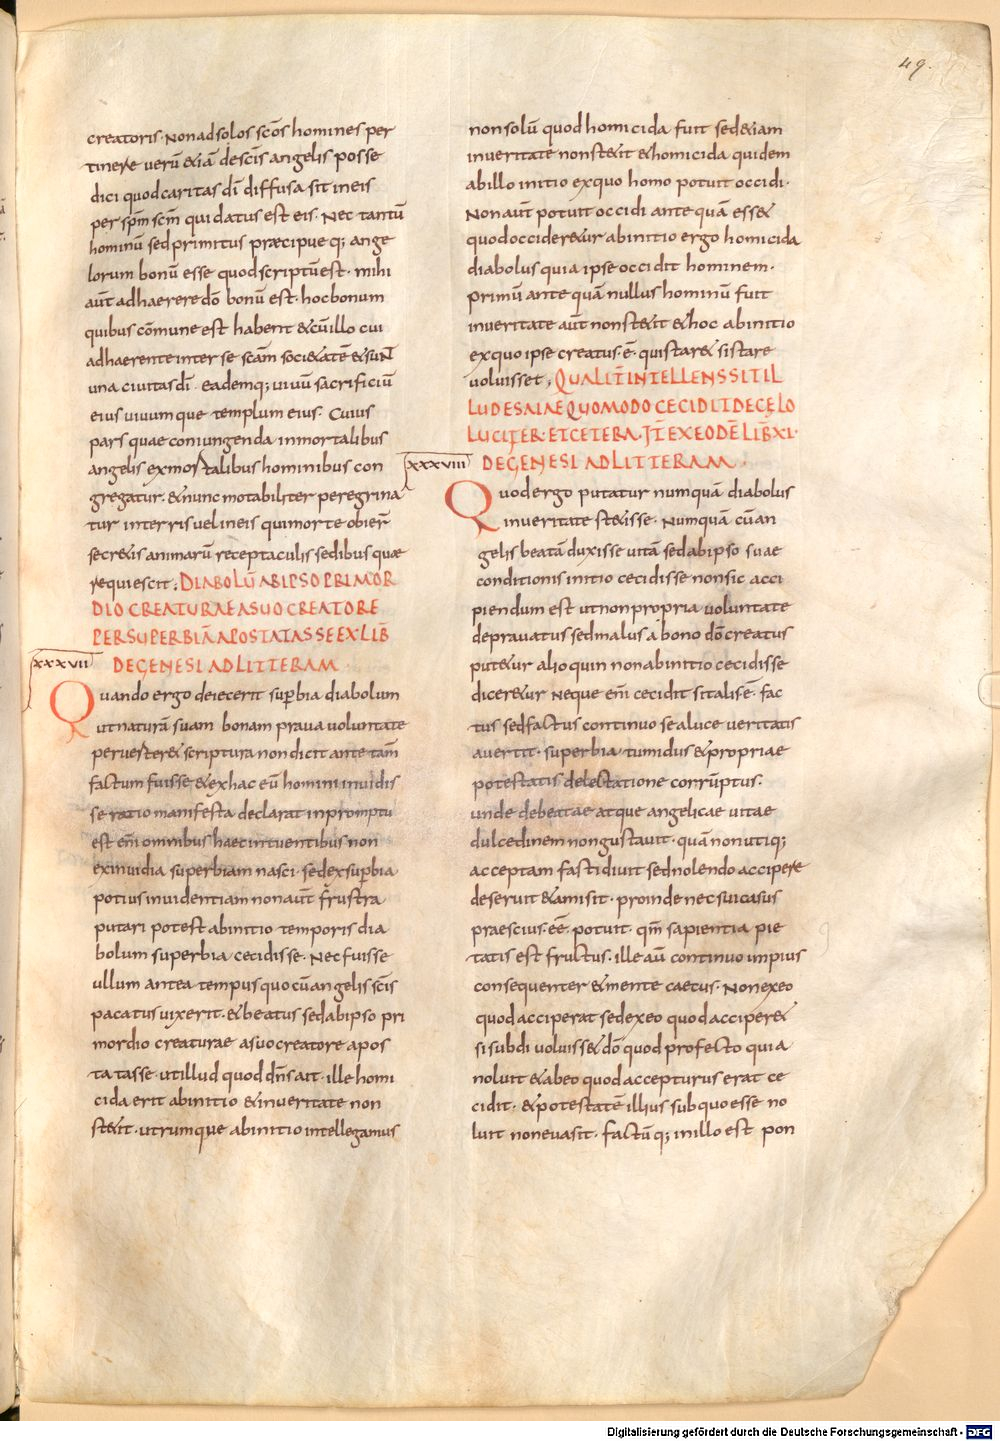 49.
creatoris. Non ad solos scōs homines per
tinere verū & iā de scīs angelis posse
dici quod caritas dī diffusa sit in eis
per spm̄ scm̄ qui datus est eis. Nec tantū
hominū sed primitus praecipue q; ange
lorum bonū esse quod scriptū est. mihi
aūt adhaerere dō bonū est. hoc bonum
quibus cōmune est habent & cū illo cui
adhaerent et inter se scām soci&atē & sunt
una civitas dī. eademq; uiuū sacrificiū
eius uiuumque templum eius. Cuius
pars quae coniungenda inmortalibus
angelis ex mortalibus hominibus con
gregatur. & nunc motabiliter peregrina
tur in terris vel in eis qui morte obier̄
secr&is animarū receptaculis sedibusquae
requiescit; DIABOLŪ AB IPSO PRIMOR
DIO CREATURAE A SUO CREATORE
PER SUPERBIĀ APOSTATASSE EX LIB̄
xxxvii DE GENESI AD LITTERAM.
Quando ergo deiecerit supbia diabolum
ut naturā suam bonam praua uoluntate
perverter& scriptura non dicit ante tam̄
factum fuisse & ex hac eū homini inuidis
se ratio manifesta declarat in promptu
est enī omnibus haec intuentibus non
ex inuidia superbiam nasci. sed ex supbia
potius inuidentiam non aūt frustra
putari potest ab initio temporis dia
bolum superbia cecidisse. Nec fuisse
ullum antea tempus quo cū angelis scīs
pacatus uixerit. & beatus sed ab ipso pri
mordio creaturae a suo creatore apos
tatasse. ut illud quod dn̄s ait. ille homi
cida erit ab initio & in ueritate non
st&it. utrumque ab initio intellegamus
non solū quod homicida fuit sed & iam
in ueritate non st&it & homicida quidem
ab illo initio ex quo homo potuit occidi.
Non aūt potuit occidi ante quā ess&
quod occider&ur ab initio ergo homicida
diabolus quia ipse occidit hominem.
primū ante quā nullus hominū fuit
in ueritate aūt non st&it & hoc ab initio
ex quo ipse creatus. ē. qui star& si stare
uoluisset; QUALIT̄ INTELLENS SIT IL
LUD ESAIAE QUOMODO CECIDIT DE CĘLO
LUCIFER. ET CETERA. IT̄ EX EODĒ LIB̄ XI.
xxxviii DE GENESI AD LITTERAM.
Quod ergo putatur numquā diabolus
in ueritate st&isse. Numquā cū an
gelis beatā duxisse uitā sed ab ipso suae
conditionis initio cecidisse non sic acci
piendum est ut non propria uoluntate
depravatus sed malus a bono dō creatus
put&ur alioquin non ab initio cecidisse
dicer&ur Neque enī cecidit si talis fē. fac
tus sed factus continuo se a luce ueritatis
auertit. superbia tumidus & propriae
potestatis delectatione corrūptus.
unde debeatae atque angelicae uitae
dulcedinem non gustauit. quā non utiq;
acceptam fastidiuit sed nolendo accipere
deseruit & amisit. proinde nec sui casus
praescius. eē. potuit. qm̄ sapientia pie
tatis est fructus. ille aūt continuo impius
consequenter & mente caecus. Non ex eo
quod acciperat sed ex eo quod acciper&
si subdi uoluiss& dō quod profecto quia
noluit & ab eo quod accepturus erat ce
cidit. & potestatē illius sub quo esse no
luit non euasit. factū q; in illo est pon
Digitalisierung gefördert durch die Deutsche Forschungsgemeinschaft - DFG